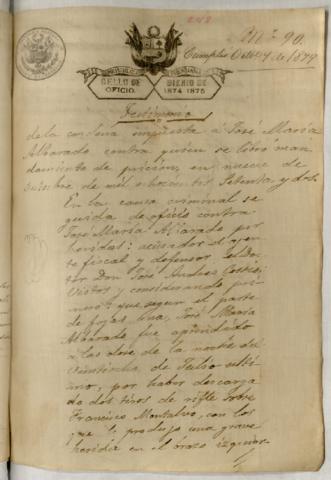 248
No. 90.
Cumplió Octe 9 de 1879
SELLO DE OFICIO.
BIENIO DE 1874 1875
Testimonio
de la condena impuesta á José María
Alvarado contra quien se libró man
damiento de prision, en nueve de
de mil ochocientos setenta y dos.
En la causa criminal se
guida de oficio contra
José María Alvarado por
heridas: acusador el agen
te fiscal y defensor el Doc
tor Don José Andres
Vistos y considerando pri
mero: que segun el parte
de fojas una, José María
Alvarado fue aprendido
á las doce de la noche del
veintiocho de Julio ulti
mo, por haber descarga
do dos tiros de rifle sobre
Francisco Montalvo, con los
que le produjo una grave
herida en el brazo izquier